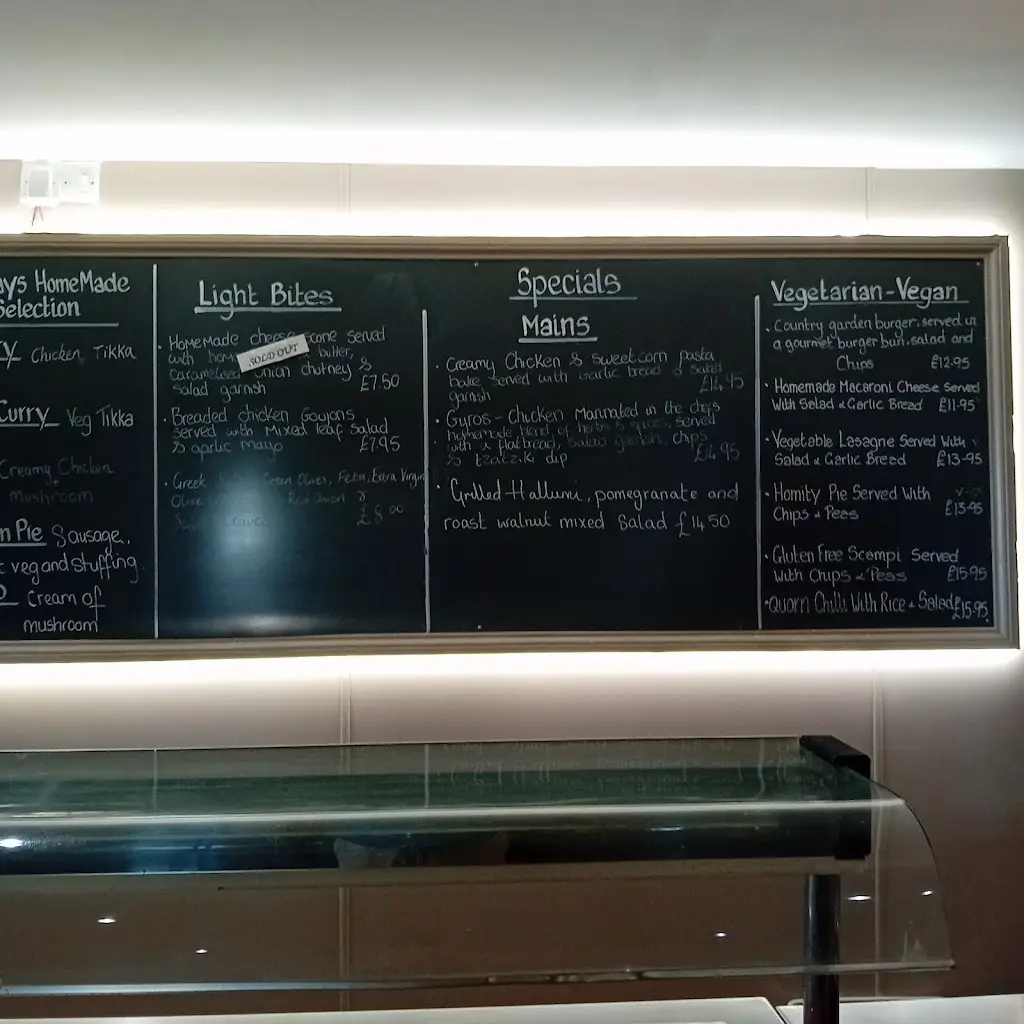 ys HomeMade
Selection
Chicken Tikka
Curry Veg Tikka
Creamy Chicken
mushroom
n Pie Sausage,
veg and stuffing
Cream of
mushroom
Light Bites
• HomeMade cheese scone served
with butter,
caramelised onion chutney &
Salad garnish £7.50
SOLD OUT
• Breaded chicken Goujons
served with Mixed leaf Salad
& garlic mayo £7.95
• Greek Green Olives, Feta, Extra Virgin
Olive Red Onion &
Leaves £8.00
Specials
Mains
• Creamy Chicken & Sweetcorn pasta
bake served with Garlic bread & salad
garnish £14.45
• Gyros - Chicken Marinated in the chefs
homemade blend of herbs & spices, served
with a flatbread, Salad garnish, chips
& tzatziki dip £14.95
• Grilled Hallumi, pomegranate and
roast walnut mixed Salad £14,50
Vegetarian-Vegan
• Country garden burger, served in
a gourmet burger bun, salad and
Chips £12.95
• Homemade Macaroni Cheese Served
With Salad & Garlic Bread £11.95
• Vegetable Lasagne Served With
Salad & Garlic Bread £13-95
• Homity Pie Served With
Chips & Peas £13.95
• Gluten Free Scampi Served
With Chips & Peas £15.95
• Quorn Chilli With Rice & Salad £15.95